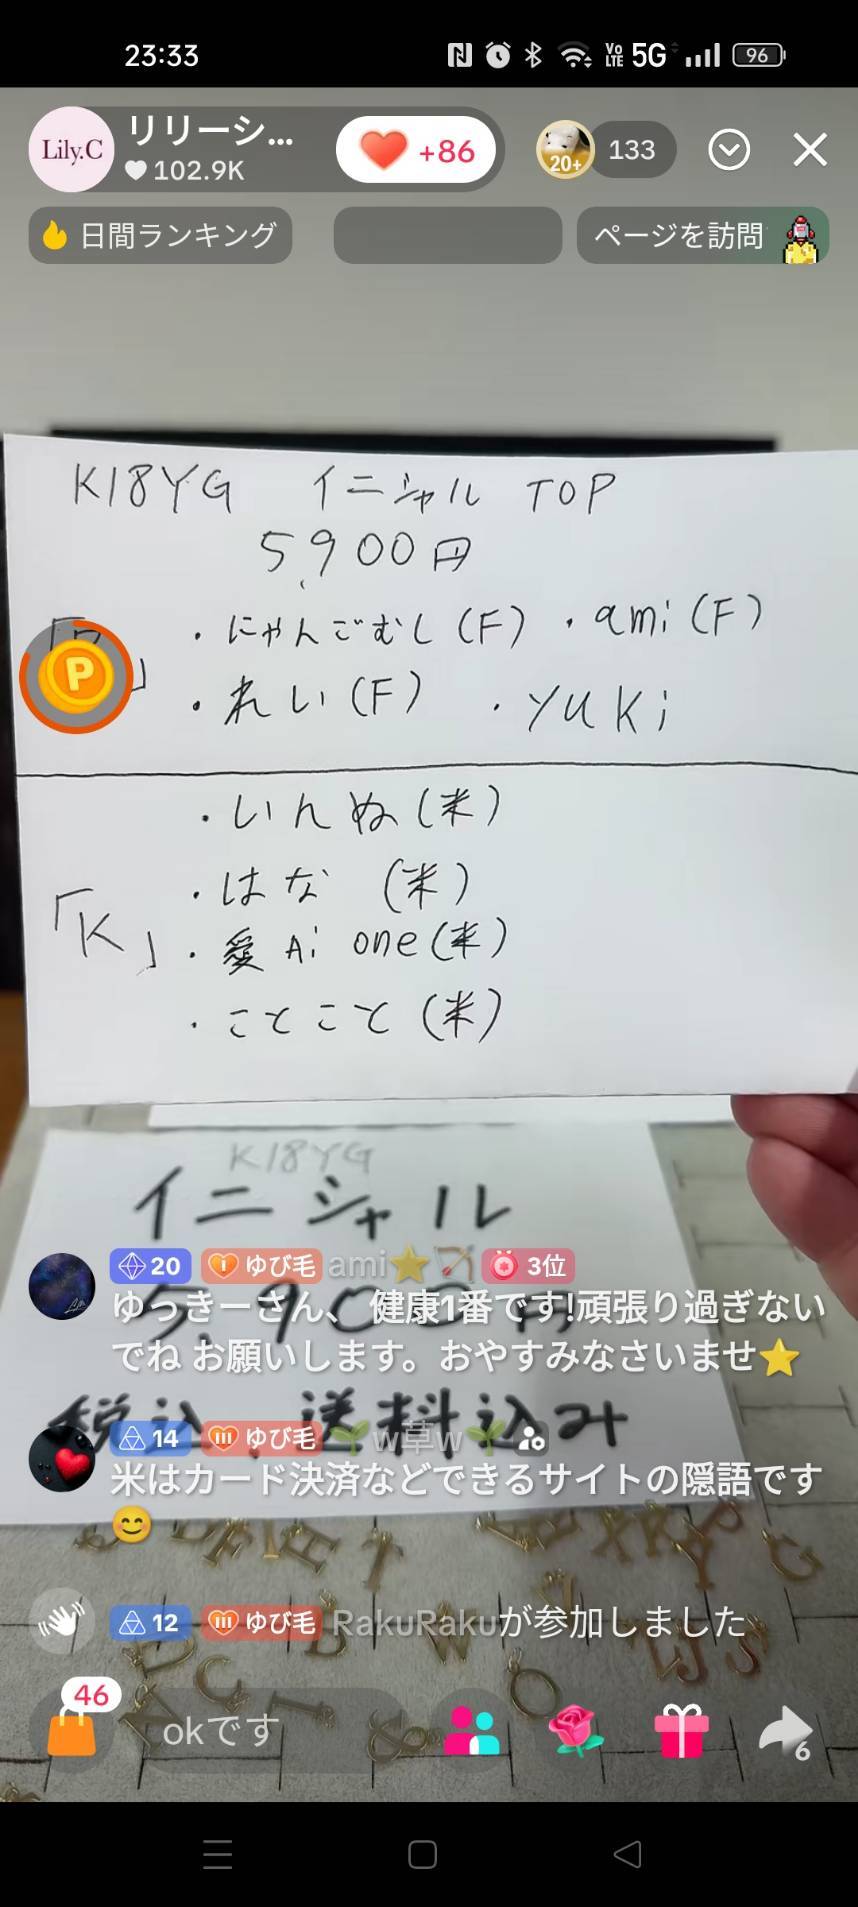 23:33
Vo LTE 5G 96
Lily.C リリーシ... +86 20+ 133
102.9K
日間ランキング ページを訪問
K18YG イニシャル TOP
5,900円
・にゃんごむし(F) ・ami(F)
「 」 P
・れい(F) ・YUKi
・いんぬ(米)
・はな (米)
「K」・愛Ai one(米)
・ことこと(米)
K18YG
イニシャル
20 I ゆび毛 ami⭐🏹 3位
ゆっきーさん、 健康1番です!頑張り過ぎない
でね お願いします。おやすみなさいませ⭐
税込、送料込み
14 III ゆび毛 🌱w草w🌱
米はカード決済などできるサイトの隠語です
😊
12 III ゆび毛 RakuRakuが参加しました
46 okです 6